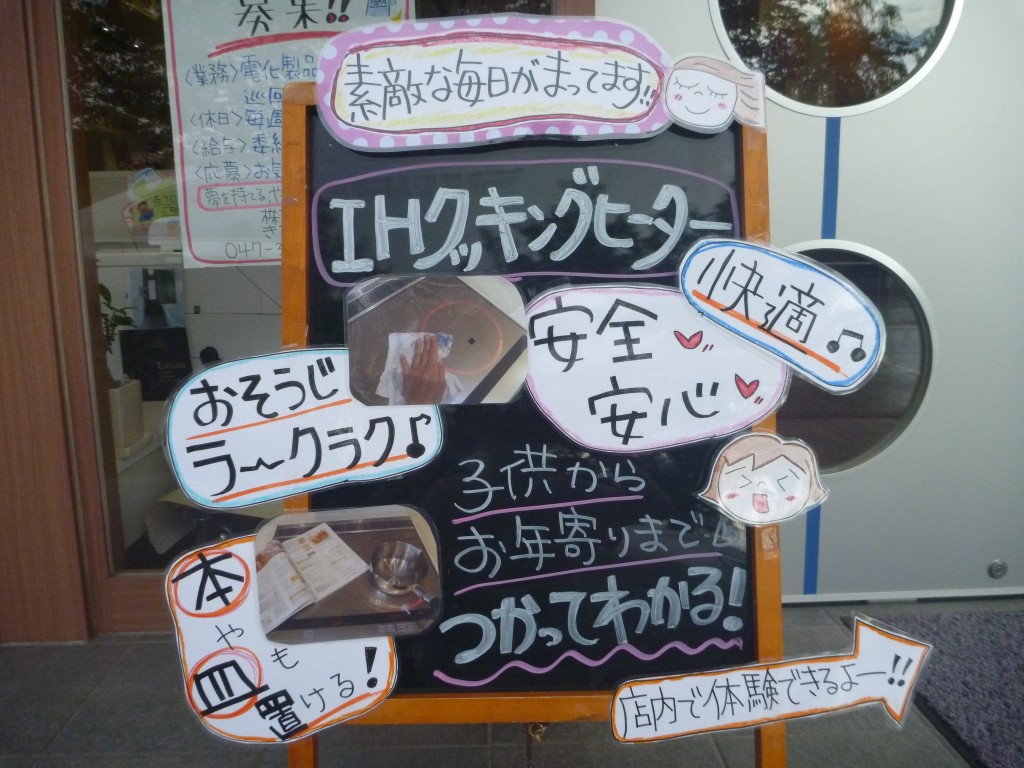 募集!!
〈業務〉電化製品
巡回
〈休日〉毎週
〈給与〉委細
〈応募〉お気
夢を持てる、や
株
047-3
素敵な毎日がまってます!!
IHクッキングヒーター
快適♫
安全
安心
おそうじ
ラ〜クラク♪
子供から
お年寄りまで
つかってわかる!
本
や
皿も
置ける!
店内で体験できるよー!!